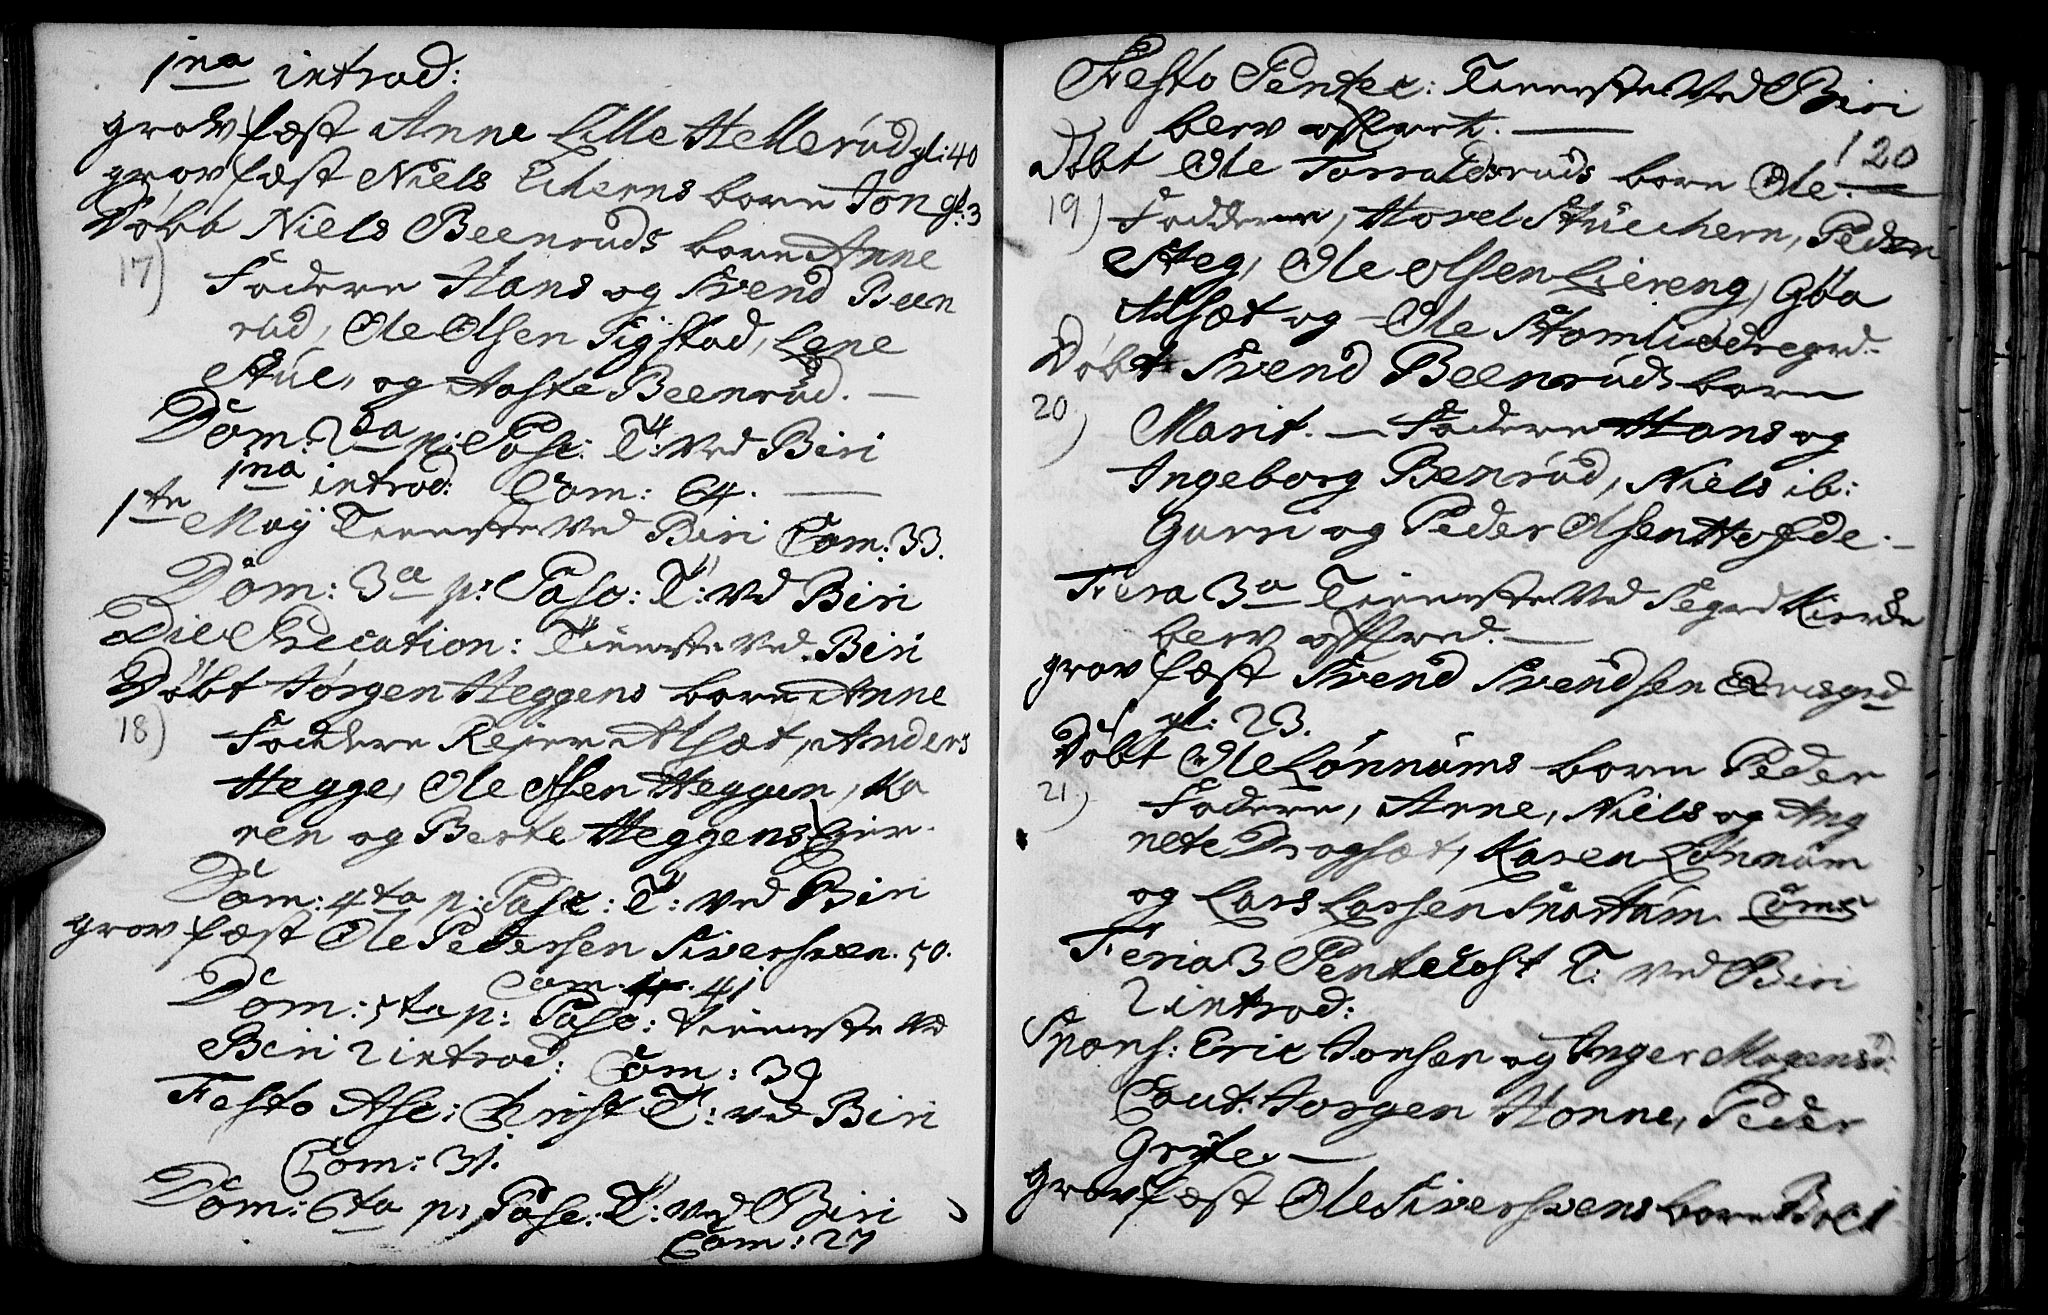 1na introd:
grov fæst Anne Lille Hellerud gl: 40
grov fæst Niels Echerns born Jon gl: 3
Døbt Niels Beenruds born Anne
17) Fadere Hans og Svend Been
rud, Ole Olsen Sigstad, Lene
Stue, og Aaste Beenrud. —
Dom: 2da p: Pasc: T: ved Biri
1na introd: Com: 64. —
1te May Tieneste ved Biri Com: 33.
Dom: 3a p: Pasc: T: ved Biri
Die Precation: Tieneste ved Biri
Døbt Jørgen Heggens born Anne
18) Faddere Reier Alsæt, Anders
Hegge, Ole Olsen Heggen, Ka
ren og Berte Heggens Eier.
Dom: 4ta p: Pasc: T: ved Biri
grov fæst Ole Pedersen Siversveen. 50.
Com. 41
Dom: 5ta p: Pasc: Tieneste ved
Biri 2 introd: Com: 39
Festo Asc: Christ T: ved Biri
Com: 31.
Dom: 6ta p: Pasc: T: ved Biri
Com: 27
Festo Pentec: Tieneste ved Biri
berv offert. —
120
Døbt Ole Torraldsruds born Ole. —
19) Faddere, Hovel Stuechern, Peder
Steg, Ole Olsen Liereng, Gøa
Alsæt og Ole Stomliødregrd.
Døbt Svend Beenruds born
20) Marit. — Fadere Hans og
Ingeborg Benrud, Niels ib:
Gurri og Peder Olsen Hofde. —
Feria 3a Tieneste ved Segrd Kierde
berv offred. —
grov fæst Svend Svendsen
gl: 23.
Døbt Ole Lønnums born Peder
21) Fadere, Anne, Niels og Ang
nete Dragsæt, Karen Lønnum
og Lars Larsen Snartum. Com 5
Feria 3 Pentecost T: ved Biri
2 introd:
Spons: Eric Jonsen og Inger Mogensd:
Caut. Jorgen Honne, Peder
Gryte. —
grov fæst Ole Siversveens born Boel